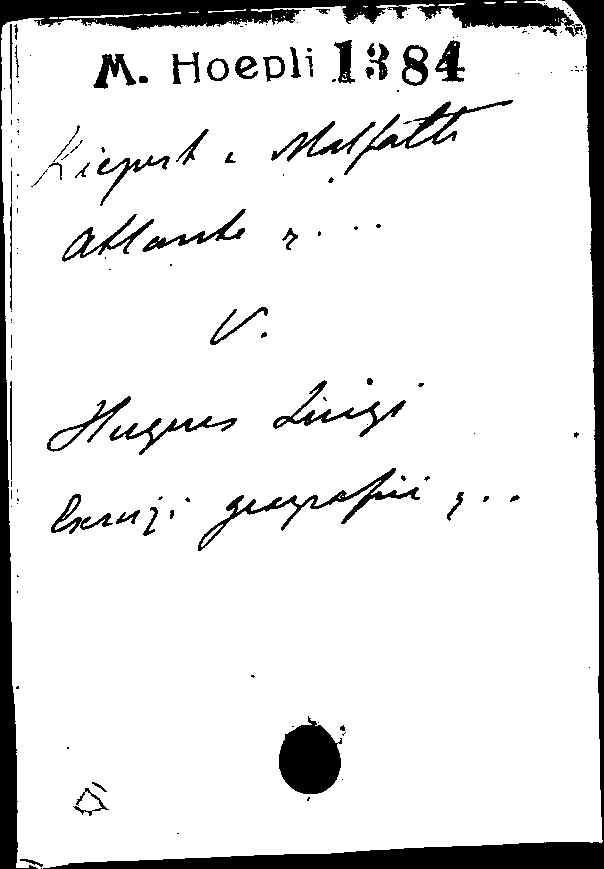 M. Hoepli 1384
Kiepert e Malfatti
Atlante ...
V.
Hugues Luigi
Esercizi geografici ...